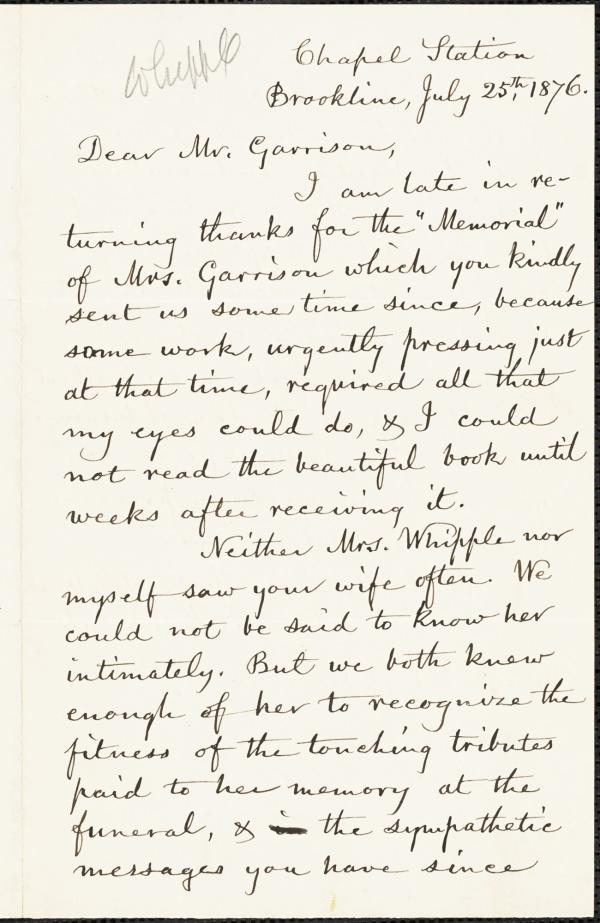 Whipple
Chapel Station
Brookline, July 25th, 1876.
Dear Mr. Garrison,
I am late in re-
turning thanks for the "Memorial"
of Mrs. Garrison which you kindly
sent us some time since, because
some work, urgently pressing just
at that time, required all that
my eyes could do, & I could
not read the beautiful book until
weeks after receiving it.
Neither Mrs. Whipple nor
myself saw your wife often. We
could not be said to know her
intimately. But we both knew
enough of her to recognize the
fitness of the touching tributes
paid to her memory at the
funeral, & the sympathetic
messages you have since